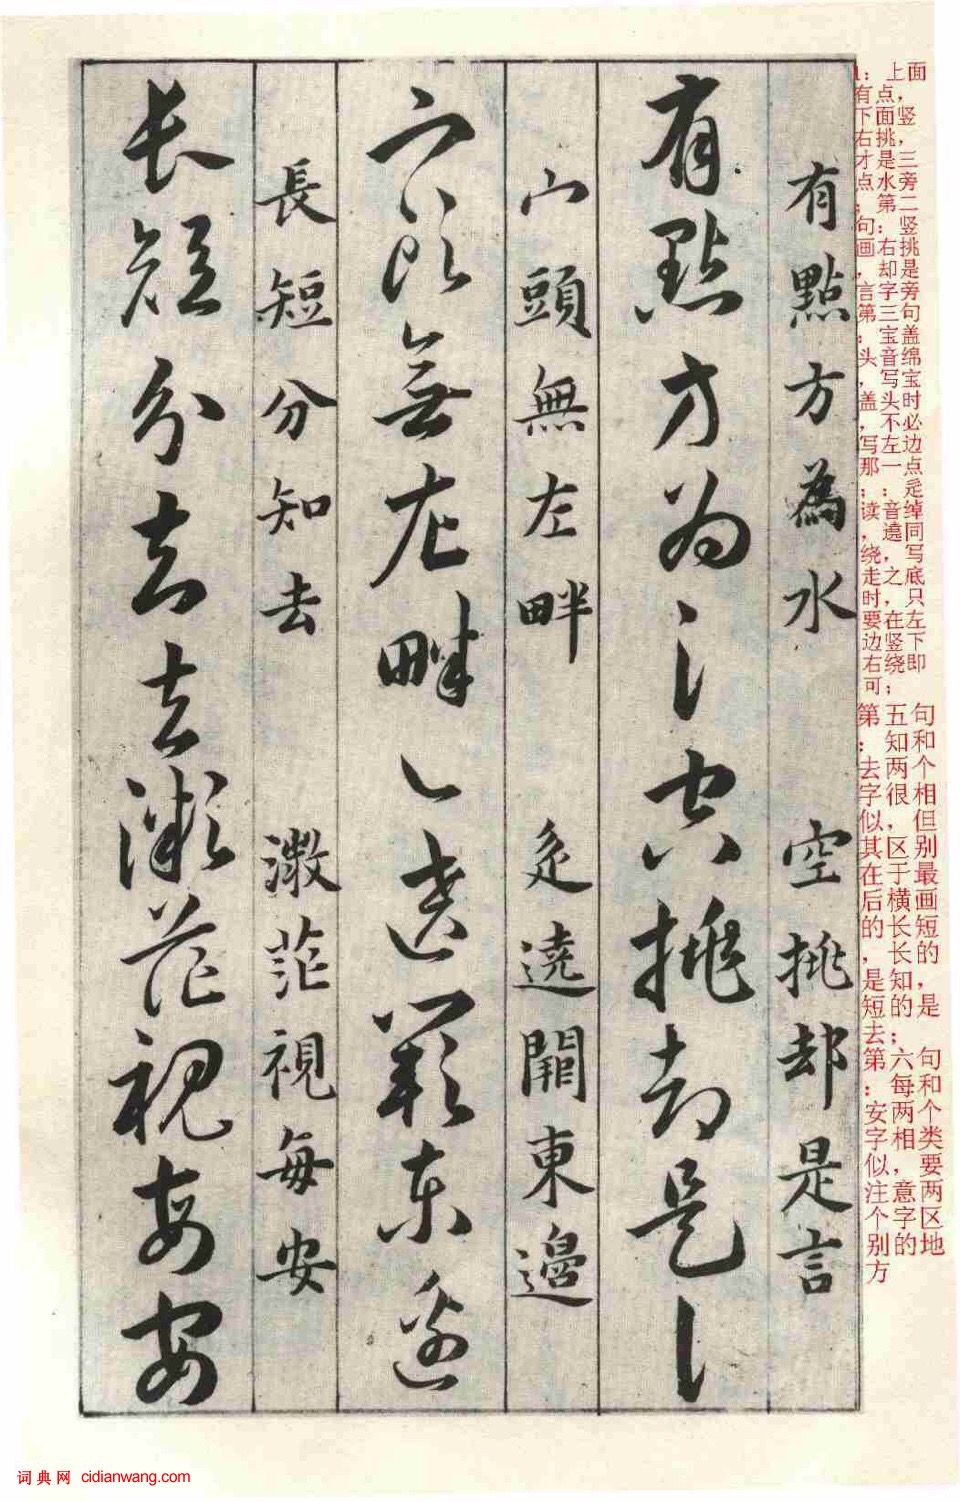 有點方為水 空挑却是言
有點方為氵空挑却是讠
宀頭無左畔 辵遶闕東邊
宀頭無左畔辶遶闕東邊
長短分知去 瀓茫視每安
長短分知去瀓茫視每安
1：上面
有点，
下面竖
右挑，
才是三
点水旁
；第二
句：竖
画右挑
，却是
言字旁
第三句
：宝盖
头音绵
，写宝
盖头时
，不必
写左边
那一点
；：辵
读音绰
，遶同
绕，写
走之底
时，只
要在左
边竖下
右绕即
可；
第五句
：知和
去两个
字很相
似，但
其区别
在于最
后横画
的长短
，长的
是知，
短的是
去；
第六句
：每和
安两个
字相类
似，要
注意两
个字区
别的地
方
词典网 cidianwang.com